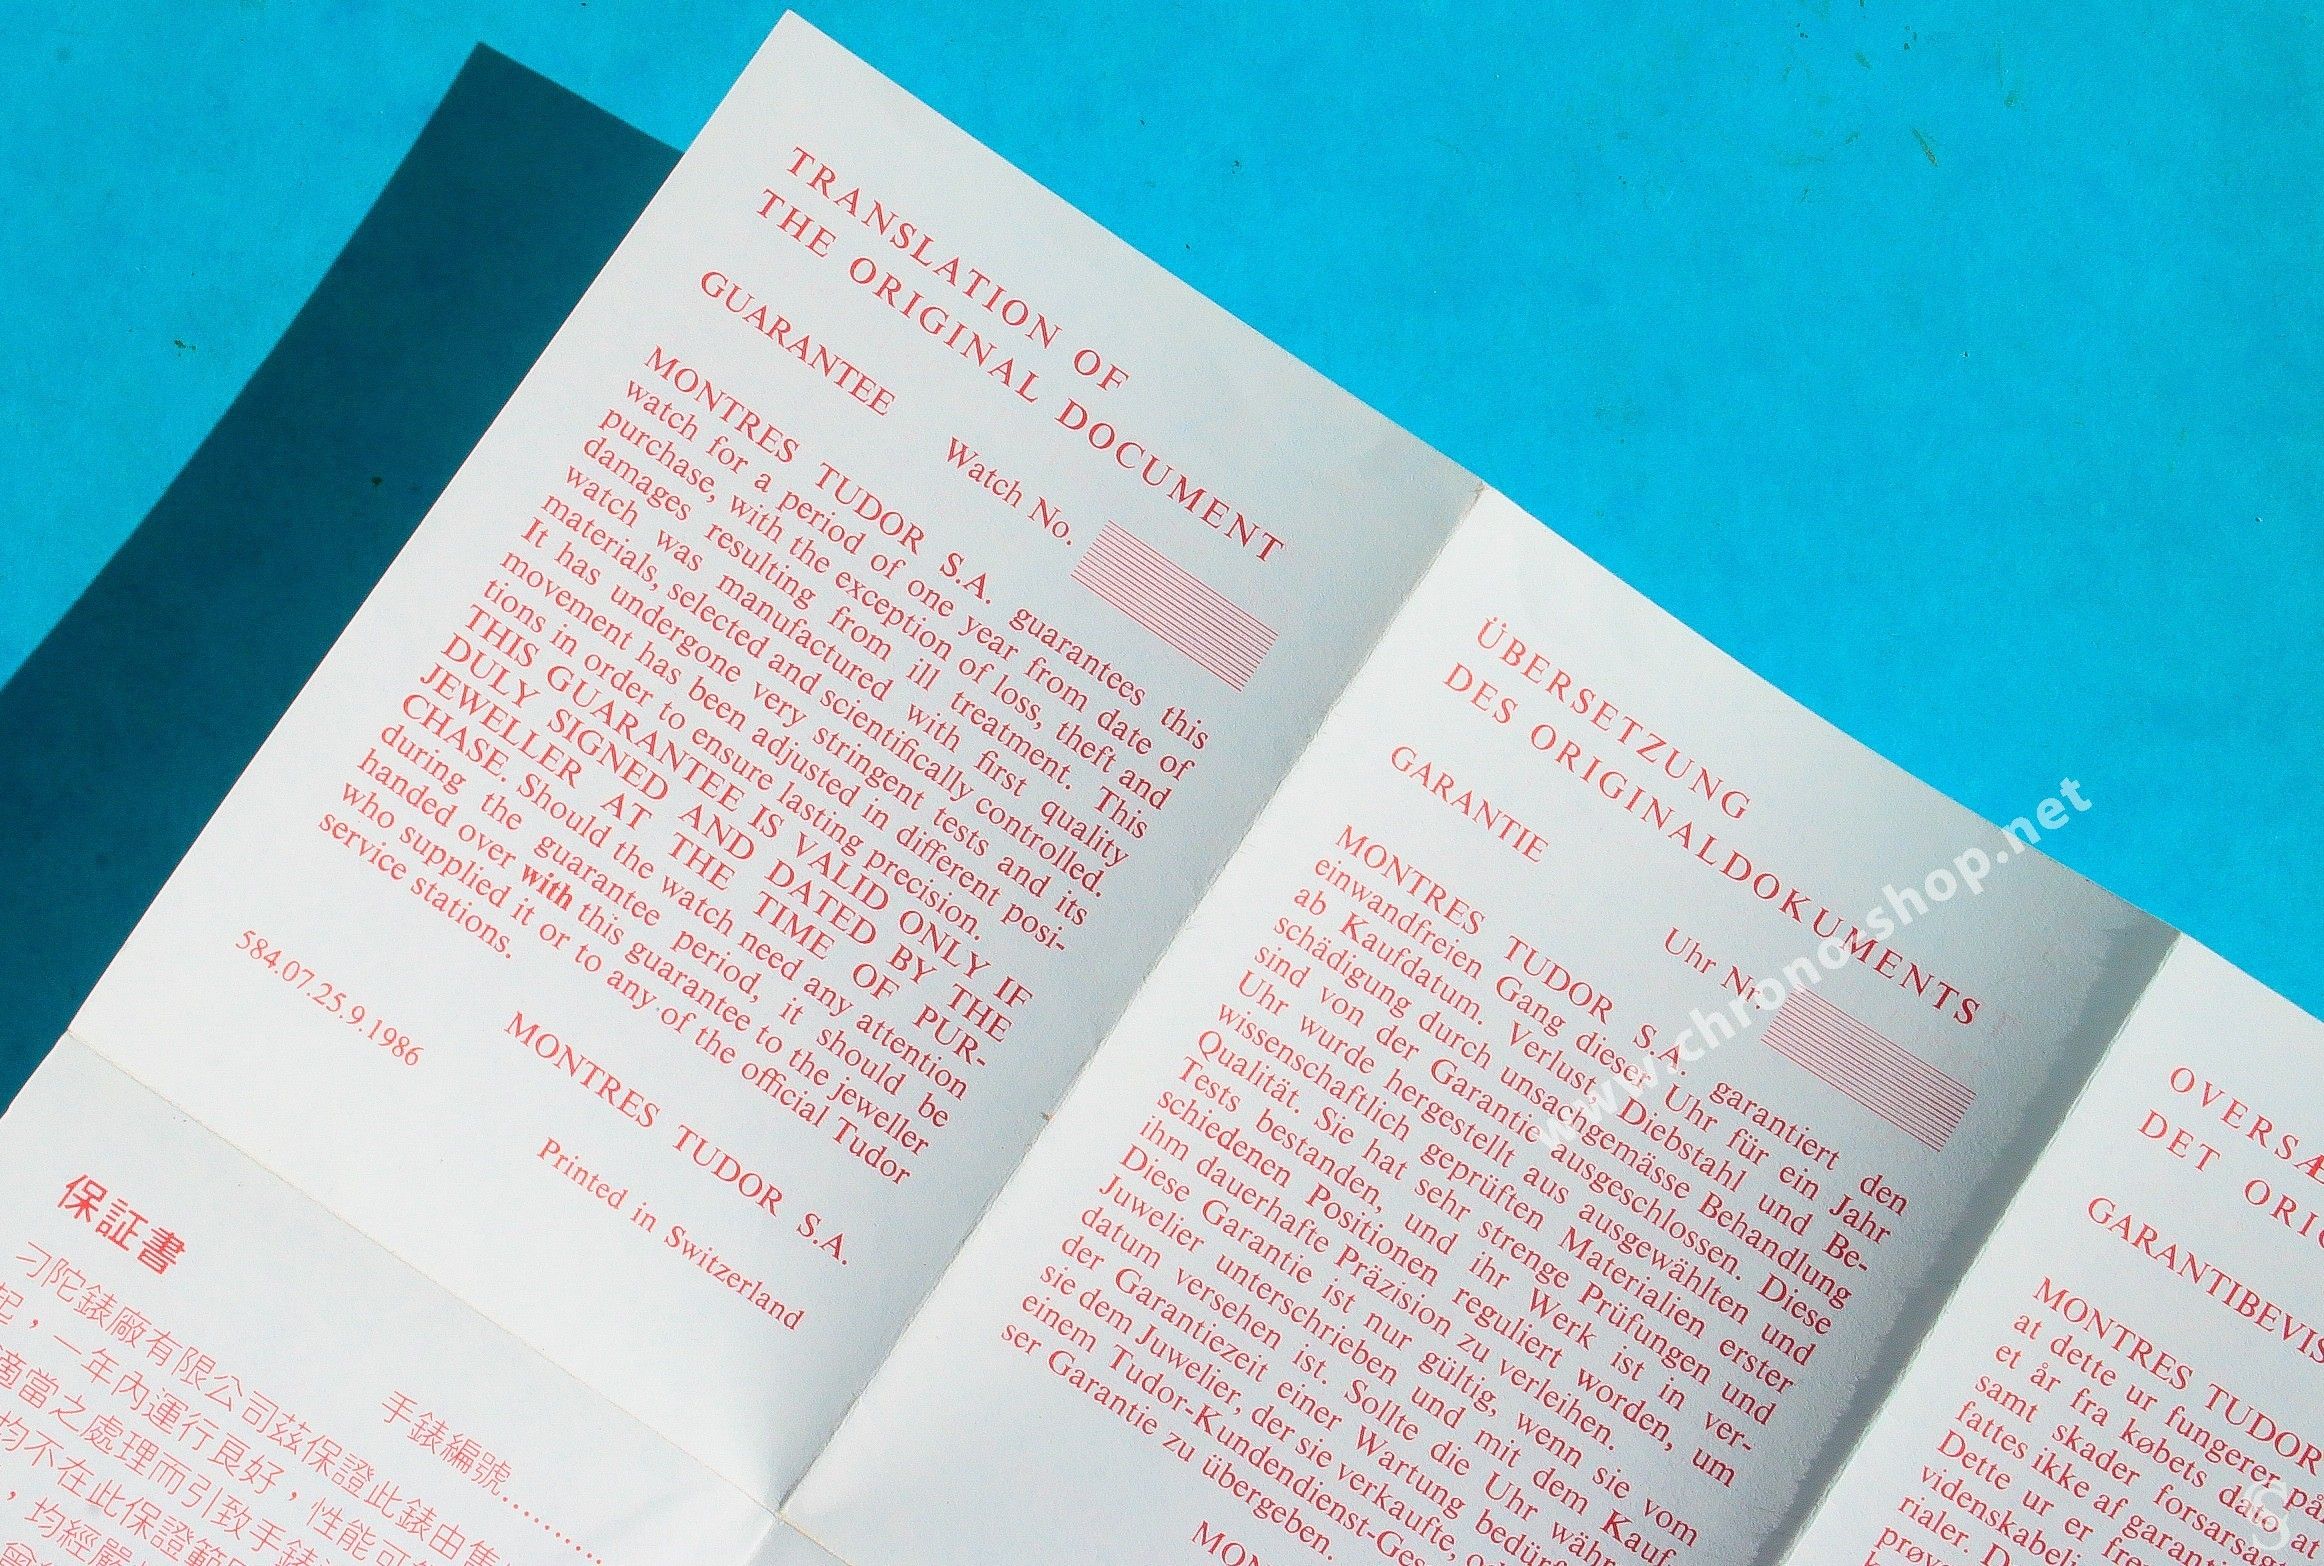 TRANSLATION OF
THE ORIGINAL DOCUMENT
GUARANTEE
Watch No.
MONTRES TUDOR S.A. guarantees this
watch for a period of one year from date of
purchase, with the exception of loss, theft and
damages resulting from ill treatment. This
watch was manufactured with first quality
materials, selected and scientifically controlled.
It has undergone very stringent tests and its
movement has been adjusted in different posi-
tions in order to ensure lasting precision.
THIS GUARANTEE IS VALID ONLY IF
DULY SIGNED AND DATED BY THE
JEWELLER AT THE TIME OF PUR-
CHASE. Should the watch need any attention
during the guarantee period, it should be
handed over with this guarantee to the jeweller
who supplied it or to any of the official Tudor
service stations.
MONTRES TUDOR S.A.
584.07.25.9.1986
Printed in Switzerland
ÜBERSETZUNG
DES ORIGINALDOKUMENTS
GARANTIE
Uhr Nr.
MONTRES TUDOR S.A. garantiert den
einwandfreien Gang dieser Uhr für ein Jahr
ab Kaufdatum. Verlust, Diebstahl und Be-
schädigung durch unsachgemässe Behandlung
sind von der Garantie ausgeschlossen. Diese
Uhr wurde hergestellt aus ausgewählten und
wissenschaftlich geprüften Materialien erster
Qualität. Sie hat sehr strenge Prüfungen und
Tests bestanden, und ihr Werk ist in ver-
schiedenen Positionen reguliert worden, um
ihm dauerhafte Präzision zu verleihen.
Diese Garantie ist nur gültig, wenn sie vom
Juwelier unterschrieben und mit dem Kauf-
datum versehen ist. Sollte die Uhr währ
der Garantiezeit einer Wartung bedürf
sie dem Juwelier, der sie verkaufte, od
einem Tudor-Kundendienst-Ges
ser Garantie zu übergeben.
MON
OVERSÆ
DET ORIG
GARANTIBEVIS
MONTRES TUDOR
at dette ur fungerer på
et år fra købets dato
samt skader forsarsa
fattes ikke af garan
Dette ur er fre
videnskabeli
rialer. D
prøve
保証書
手錶編號............
刁陀錶廠有限公司茲保證此錶由售
起，一年內運行良好，性能可
適當之處理而引致手錶
均不在此保證範
，均經嚴
www.chrono-shop.net